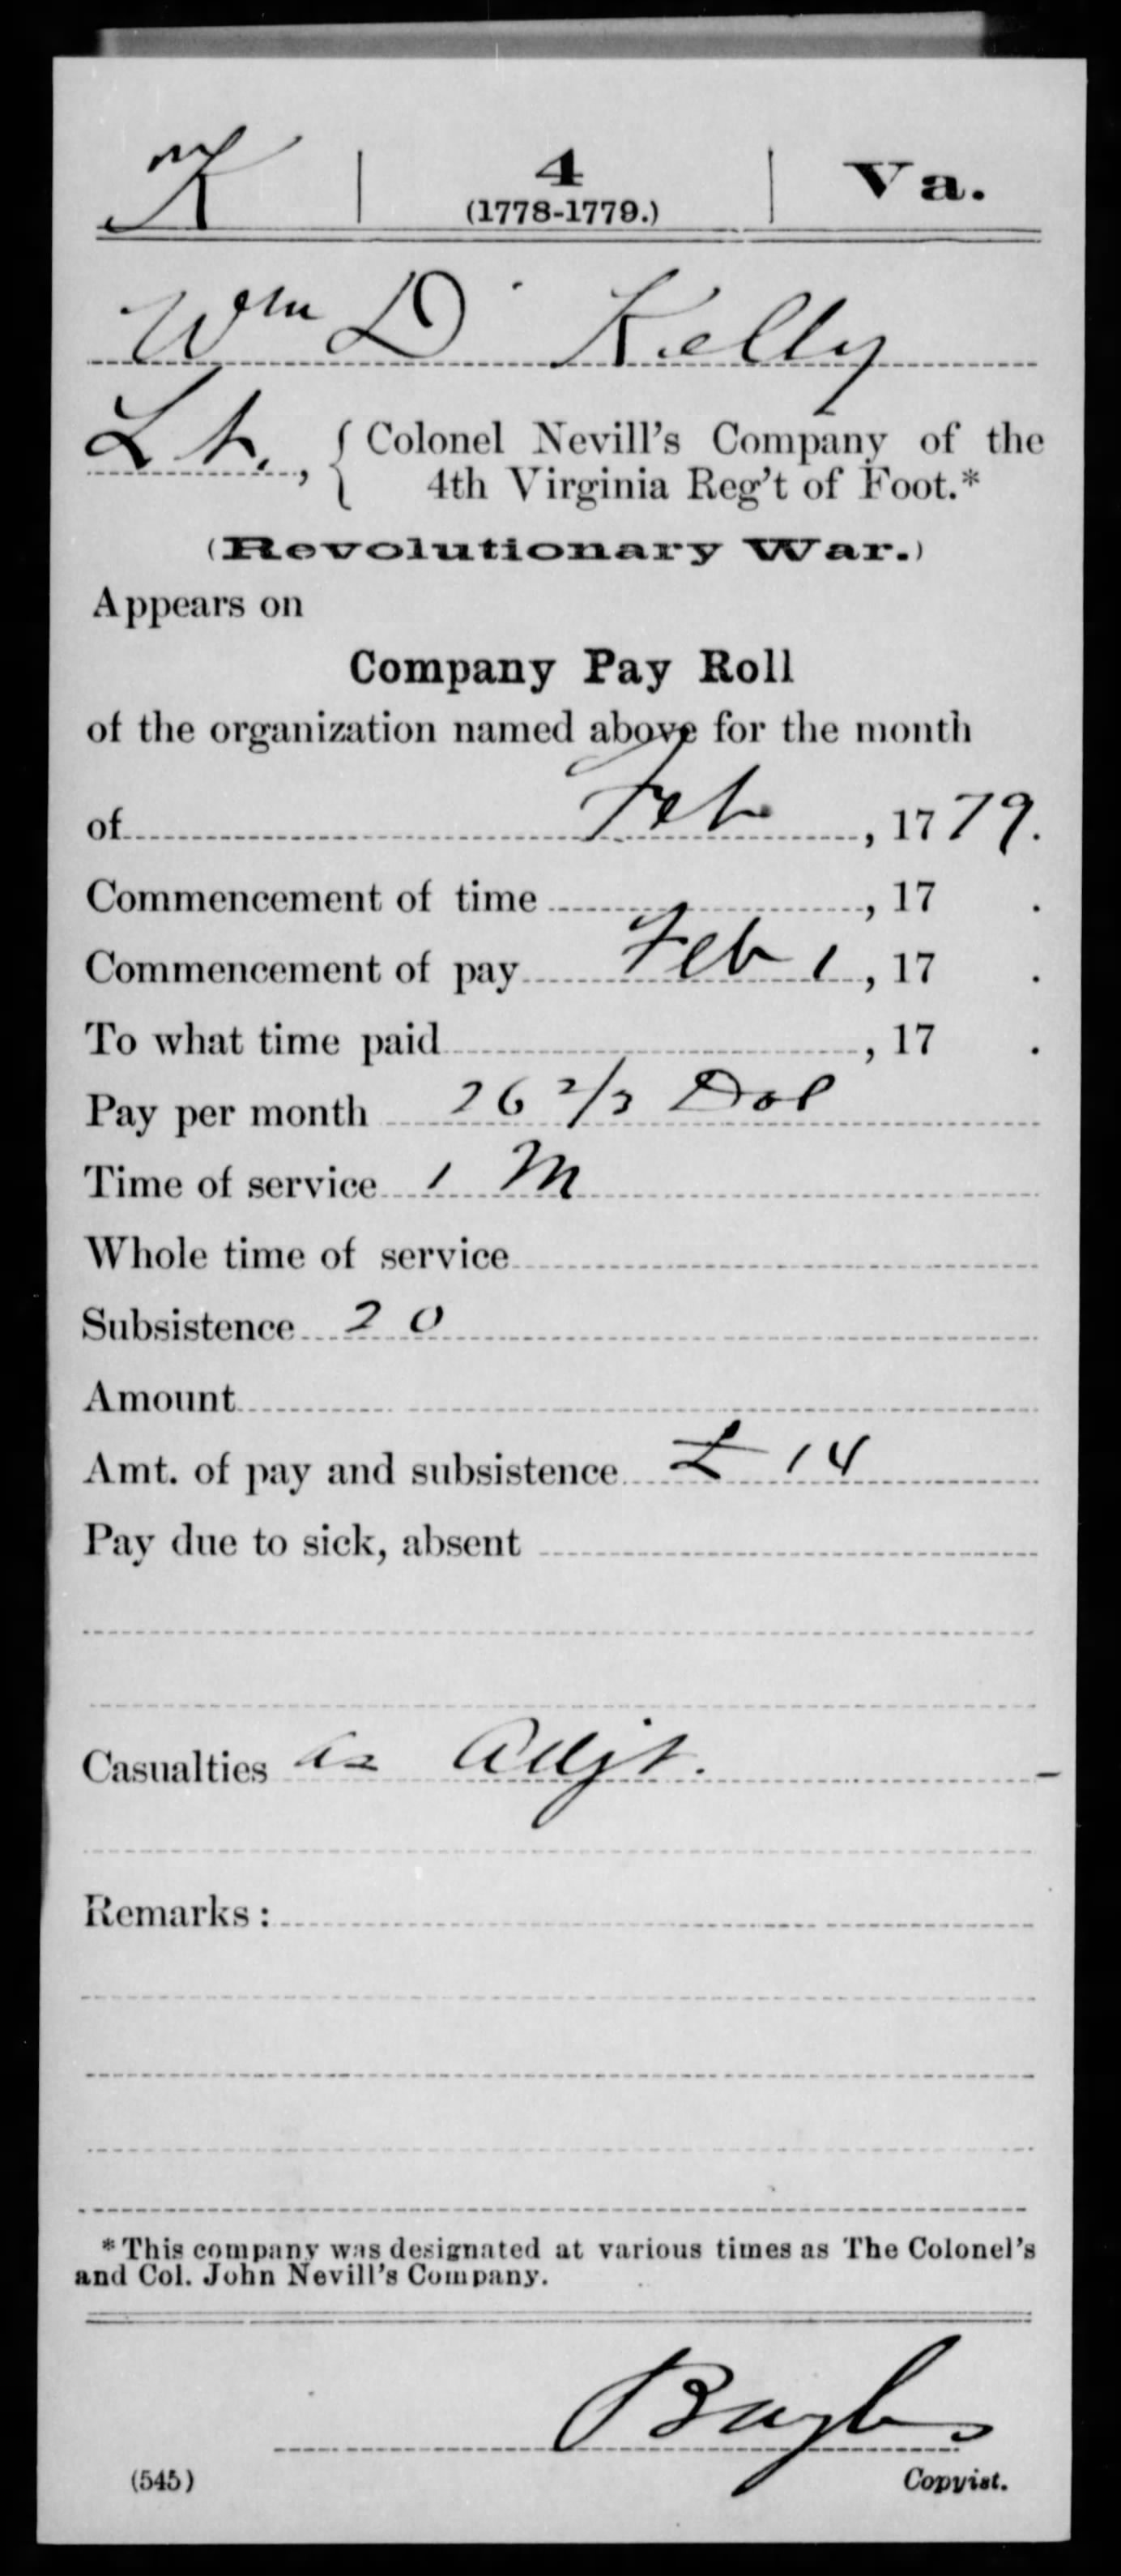 K | 4 (1778-1779.) | Va.
Wm D Kelly
Lt., { Colonel Nevill's Company of the
4th Virginia Reg't of Foot.*
(Revolutionary War.)
Appears on
Company Pay Roll
of the organization named above for the month
of Feb, 1779.
Commencement of time , 17 .
Commencement of pay Feb 1, 17 .
To what time paid , 17 .
Pay per month 26 2/3 Dol
Time of service 1 M
Whole time of service
Subsistence 20
Amount
Amt. of pay and subsistence £ 14
Pay due to sick, absent
Casualties as Adjt.
Remarks:
*This company was designated at various times as The Colonel's
and Col. John Nevill's Company.
(545) Copyist.